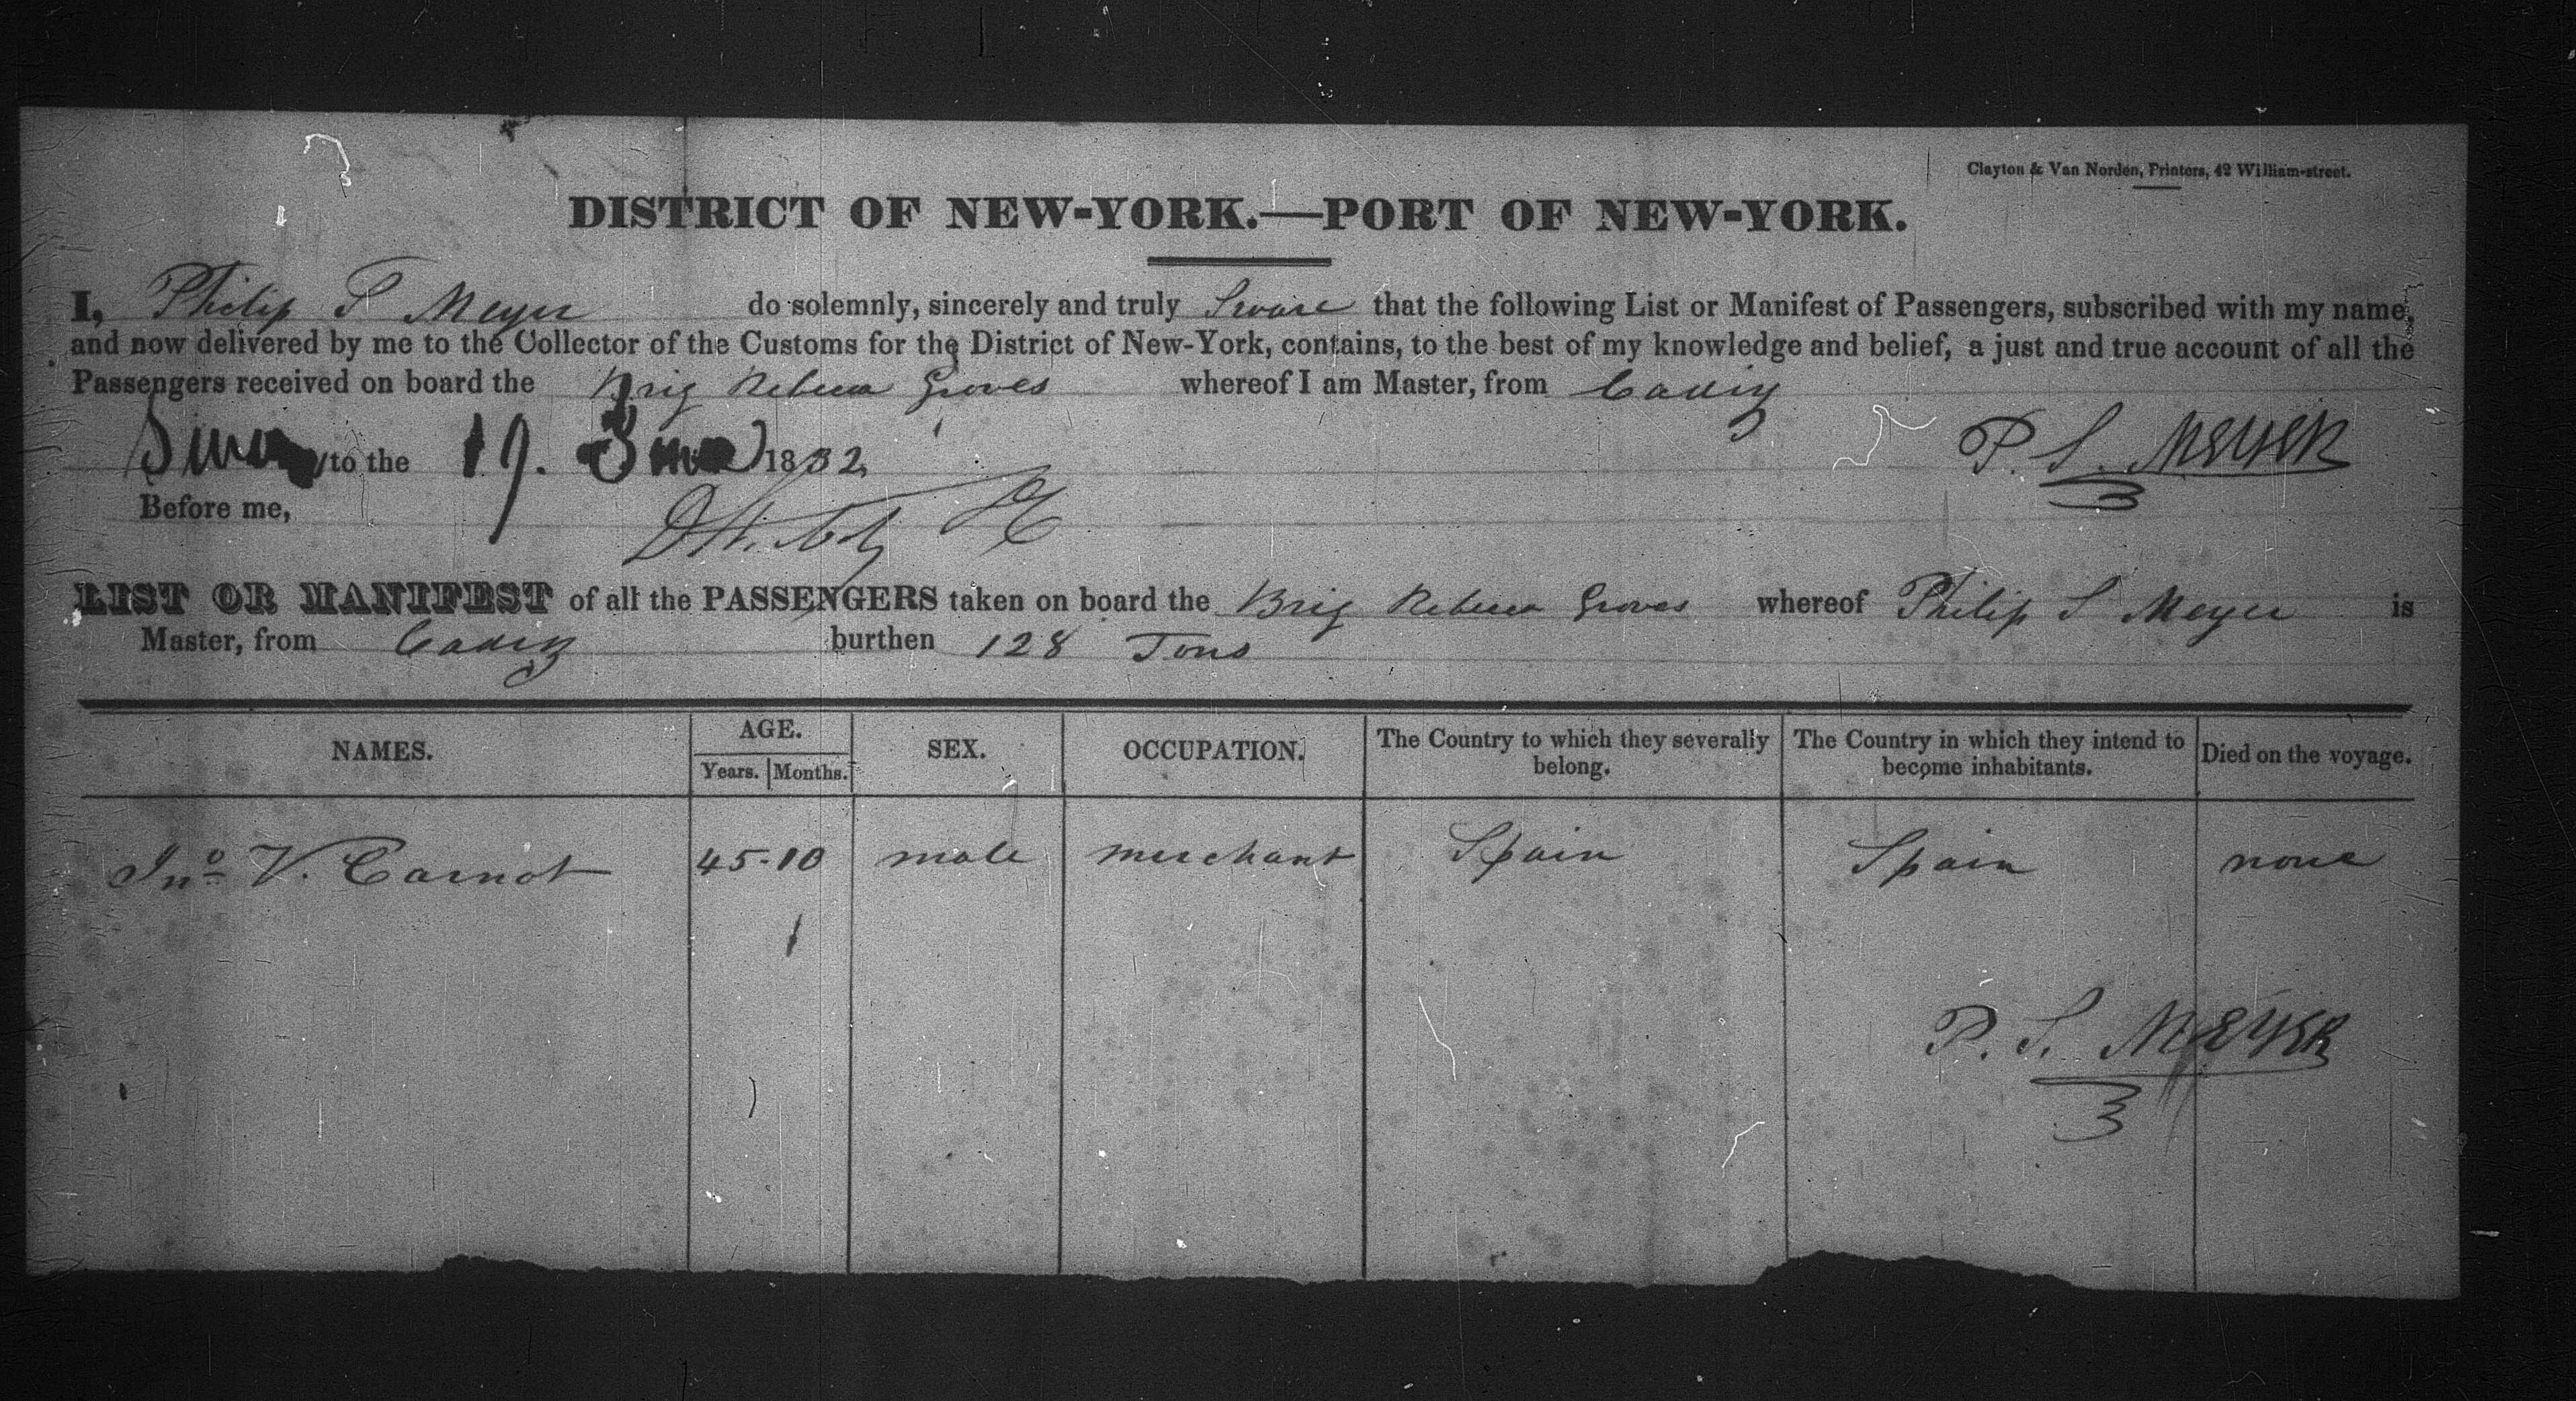 Clayton & Van Norden, Printers, 42 William-street.
DISTRICT OF NEW-YORK.—PORT OF NEW-YORK.
I, Philip S Meyer do solemnly, sincerely and truly Sware that the following List or Manifest of Passengers, subscribed with my name,
and now delivered by me to the Collector of the Customs for the District of New-York, contains, to the best of my knowledge and belief, a just and true account of all the
Passengers received on board the Brig Rebecca Groves whereof I am Master, from Cadiz
to the 19. June 1832
P. S. MEYER
Before me,
LIST OR MANIFEST of all the PASSENGERS taken on board the Brig Rebecca Groves whereof Philip S Meyer is
Master, from Cadiz burthen 128 Tons
NAMES. AGE. Years. Months. SEX. OCCUPATION. The Country to which they severally belong. The Country in which they intend to become inhabitants. Died on the voyage.
Jno V. Carnot 45-10 male merchant Spain Spain none
1
P. S. MEYER